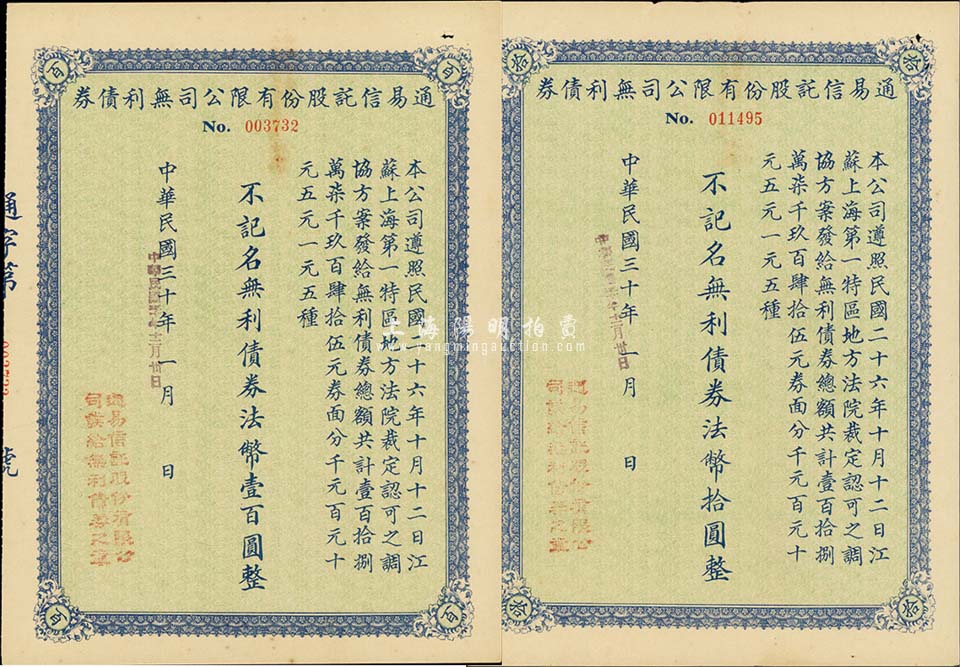 百
百
通易信託股份有限公司無利債券
No. 003732
本公司遵照民國二十六年十月十二日江
蘇上海第一特區地方法院裁定認可之調
協方案發給無利債券總額共計壹百拾捌
萬柒千玖百肆拾伍元券面分千元百元十
元五元一元五種
不記名無利債券法幣壹百圓整
中華民國三十年一月 日
通易信託股份有限公
司發給無利債券之章
通字第
號
百
百
拾
拾
通易信託股份有限公司無利債券
No. 011495
本公司遵照民國二十六年十月十二日江
蘇上海第一特區地方法院裁定認可之調
協方案發給無利債券總額共計壹百拾捌
萬柒千玖百肆拾伍元券面分千元百元十
元五元一元五種
不記名無利債券法幣拾圓整
中華民國三十年一月 日
通易信託股份有限公
司發給無利債券之章
拾
拾
上海陽明拍賣
www.yangmingauction.com